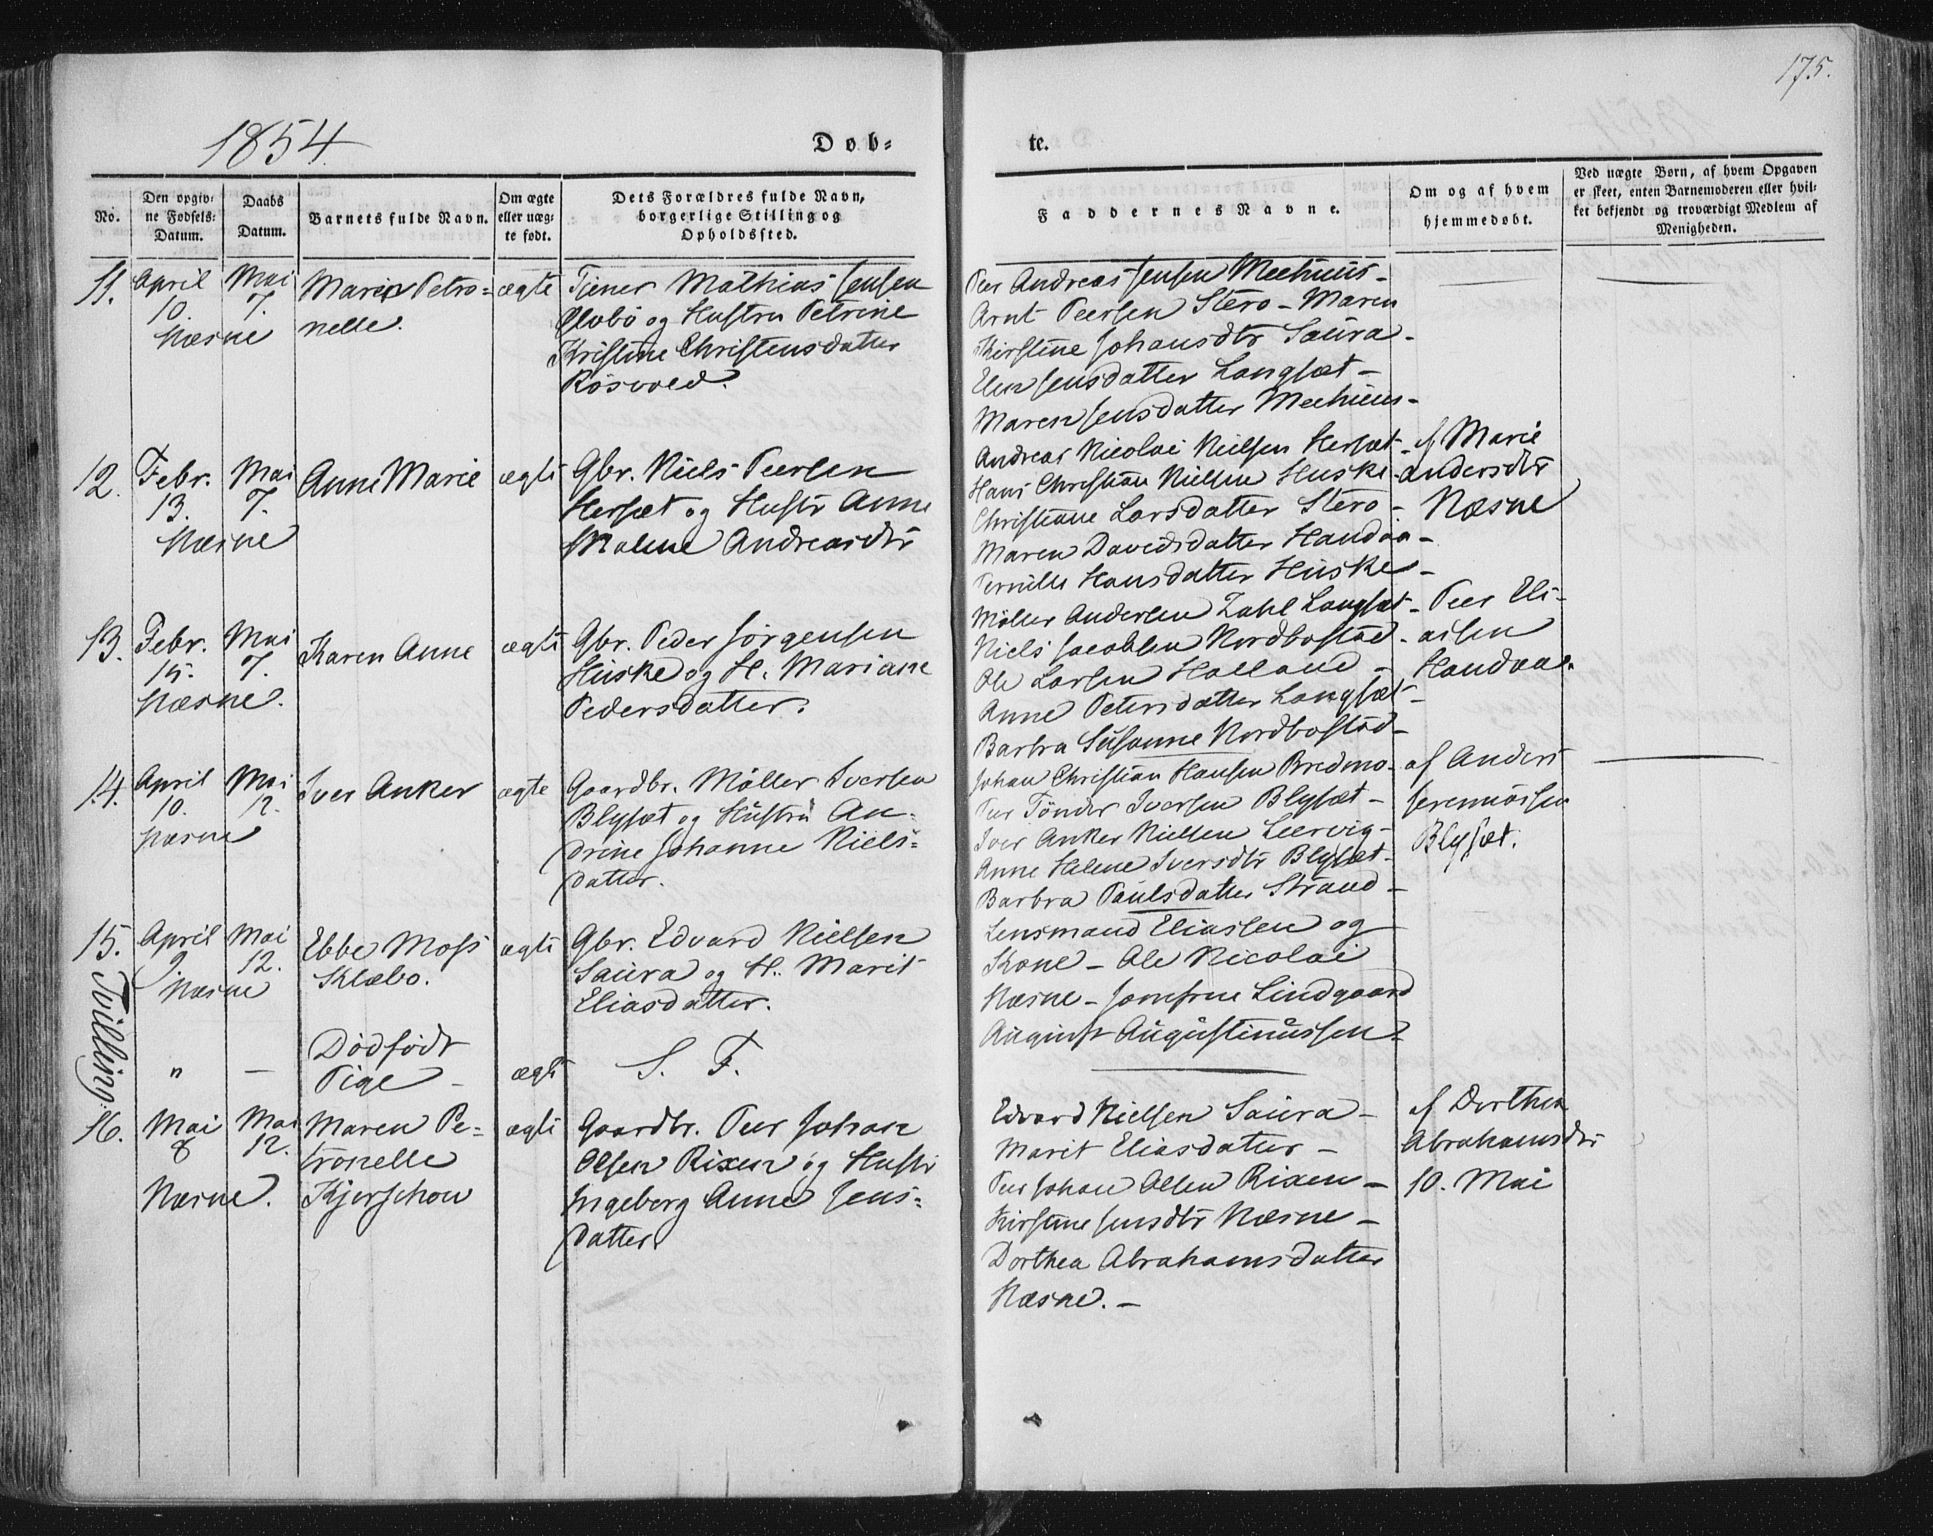 175.
1854
Døb-
te.
No.
Den opgiv-
ne Fødsels-
Datum.
Daabs
Datum.
Barnets fulde Navn.
Om ægte
eller uæg-
te født.
Dets Forældres fulde Navn,
borgerlige Stilling og
Opholdssted.
Faddernes Navne.
Om og af hvem
hjemmedøbt.
Ved uægte Børn, af hvem Opgaven
er skeet, enten Barnemoderen eller hvil-
ket bekjendt og troværdigt Medlem af
Menigheden.
11.
April
10.
Næsne
Mai
7.
Maria Petro-
nelle.
ægte
Tjener Mathias Jensen
og Hustru Petrine
Kristine Christensdatter
Røsvold.
Peer Andreas Jensen
Arnt Peersen Sterø - Maren
Kirstine Johansdtr Saura -
Elen Jensdatter Langsæt -
Maren Jensdatter
12.
Febr.
13.
Næsne
Mai
7.
Anne Marie
ægte
Gbr. Niels Peersen
Hersæt og Hustr Anne
Malene Andreasdtr
Andreas Nicolai Nielsen Hersæt -
Hans Christian Nielsen Huske -
Christiane Larsdatter Sterø -
Maren Davidsdatter Handaa -
Pernille Hansdatter Huske -
af Marie
Andersdtr
Næsne
13.
Febr.
15.
Næsne.
Mai
7.
Karen Anne
ægte
Gbr. Peder Jørgensen
Huske og H. Mariane
Pedersdatter.
Møller Andersen Zahl Langsæt -
Niels Jacobsen Nordbostad -
Ole Larsen Holland -
Anne Petersdatter Langsæt -
Barbra Susanne Nordbostad -
Peer Eli-
assen
Handaa.
14.
April
10.
Næsne
Mai
12.
Iver Anker
ægte
Gaardbr. Møller Iversen
Blysæt og Hustru An-
drine Johanne Niels-
datter.
Johan Christian Hansen Bredmo -
Peer Tønder Iversen Blysæt -
Iver Anker Nielsen Leervig -
Anne Helene Iversdtr Blysæt -
Barbra Paulsdatter Strand -
af Anders
Jeremiassen
Blysæt.
15.
Tvilling.
April
9.
Næsne
Mai
12.
Ebbe Moss
Klæbo.
ægte
Gbr. Edvard Nielsen
Saura og H. Marit
Eliasdatter.
Lensmand Eliassen og
Kone - Ole Nicolai
Næsne - Jomfrue Lindgaard
August Augustinussen -
" -
Dødfødt
Pige -
ægte
S. F.
16.
Mai
8
Næsne.
Mai
12.
Maren Pe-
tronelle
Kjerschow
ægte
Gaardbr. Peer Johan
Olsen Rixen og Hustr
Ingeberg Anne Jens-
datter.
Edvard Nielsen Saura -
Marit Eliasdatter -
Peer Johan Olsen Rixen -
Kirstine Jensdtr Næsne -
Dorthea Abrahamsdatter
Næsne. -
af Dorthea
Abrahamsdtr
10. Mai